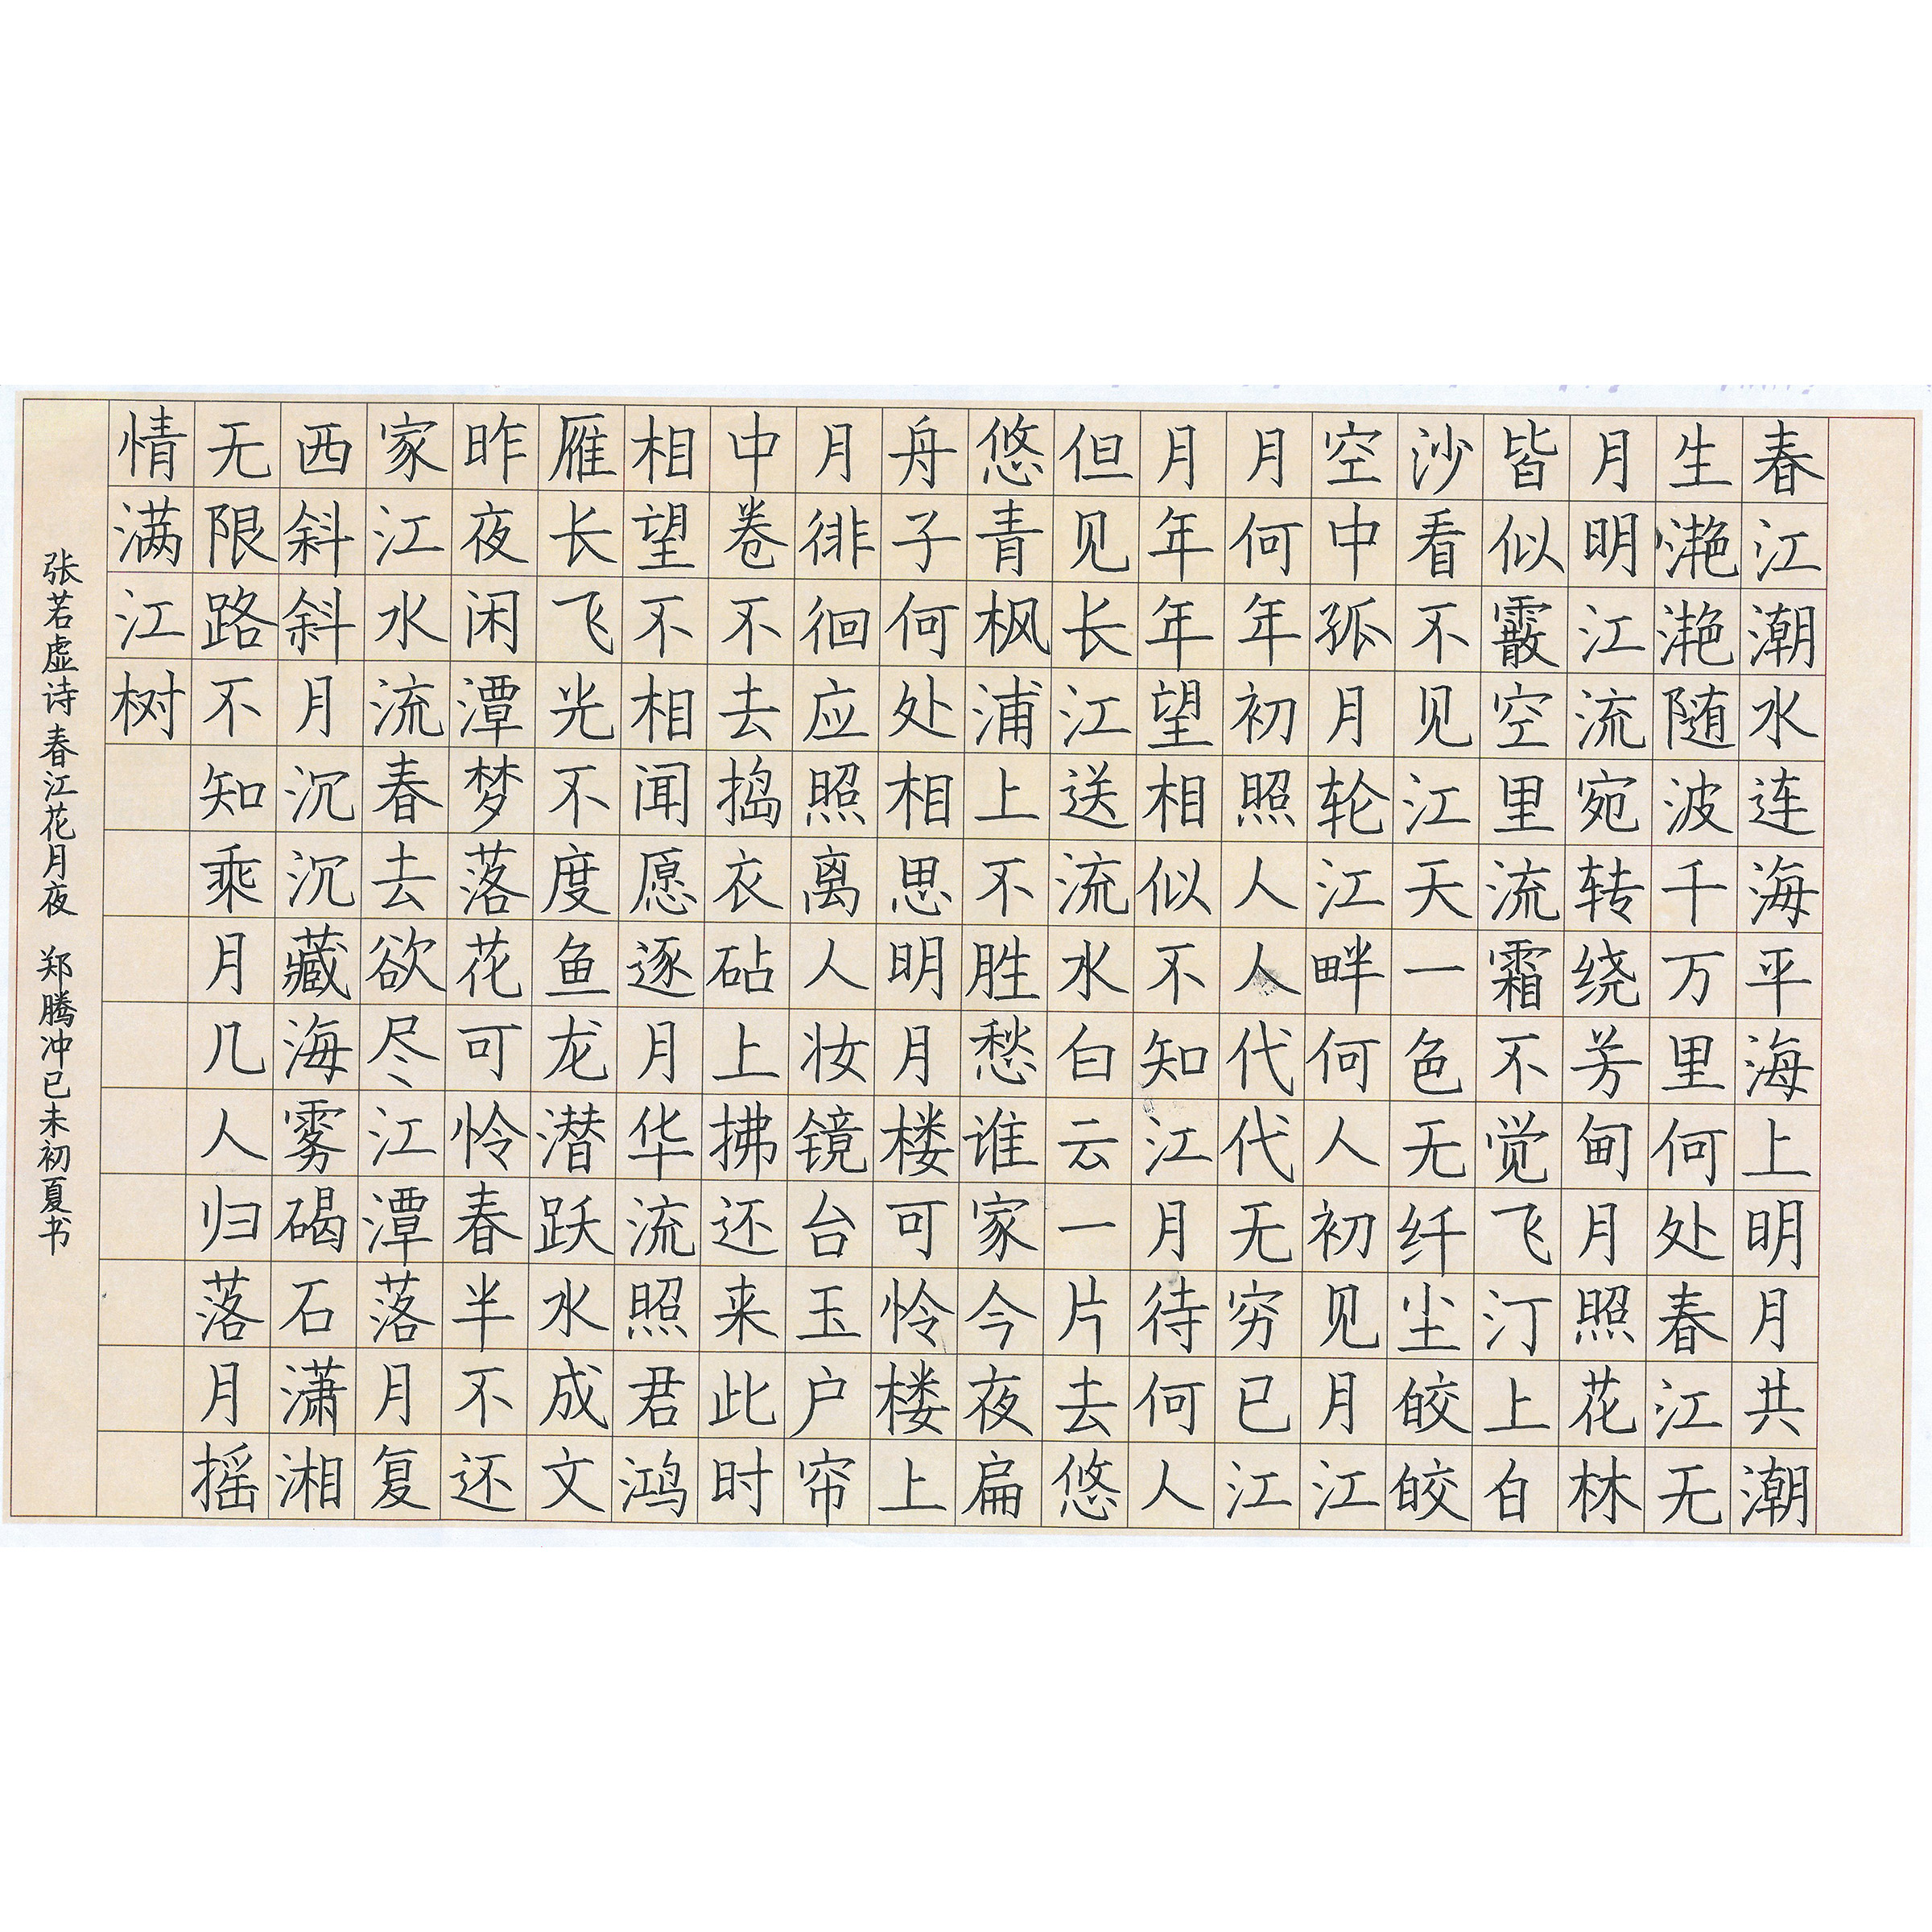 春江潮水连海平海上明月共潮
生滟滟随波千万里何处春江无
月明江流宛转绕芳甸月照花林
皆似霰空里流霜不觉飞汀上白
沙看不见江天一色无纤尘皎皎
空中孤月轮江畔何人初见月江
月何年初照人人代代无穷已江
月年年望相似不知江月待何人
但见长江送流水白云一片去悠
悠青枫浦上不胜愁谁家今夜扁
舟子何处相思明月楼可怜楼上
月徘徊应照离人妆镜台玉户帘
中卷不去捣衣砧上拂还来此时
相望不相闻愿逐月华流照君鸿
雁长飞光不度鱼龙潜跃水成文
昨夜闲潭梦落花可怜春半不还
家江水流春去欲尽江潭落月复
西斜斜月沉沉藏海雾碣石潇湘
无限路不知乘月几人归落月摇
情满江树
张若虚诗春江花月夜 郑腾冲已未初夏书